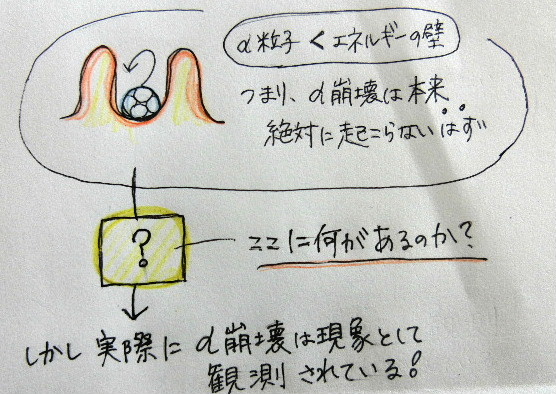 α粒子 < エネルギーの壁
つまり、α崩壊は本来
絶対に起こらないはず
?
ここに何があるのか?
しかし実際にα崩壊は現象として
観測されている!